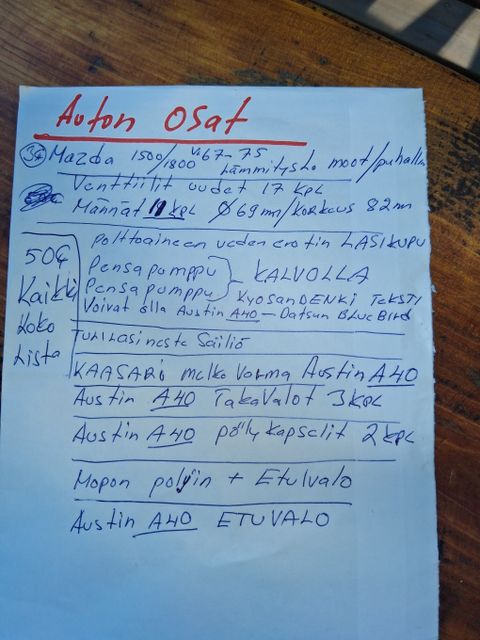 Auton OSat
3€ Mazda 1500/1800 V. 67-75 Lämmitysko moot/puhallin
Venttiilit uudet 17 kpl
Männät 11 kpl Ø 69mm/korkeus 82mm
polttoaineen veden erotin LASIKUPU
Pensapumppu } KALVOLLA
Pensapumppu } KYOSANDENKI TEKSTI
Voivat olla Austin A40 – Datsun BLUEBird
50€ Kaikki Koko Lista
TUULILASINESTE Säiliö
KAASARI melko varma Austin A40
Austin A40 TakaValot 3 KPL
Austin A40 pölykapselit 2 kpl
Mopon polyin + Etulvalo
Austin A40 ETUVALO